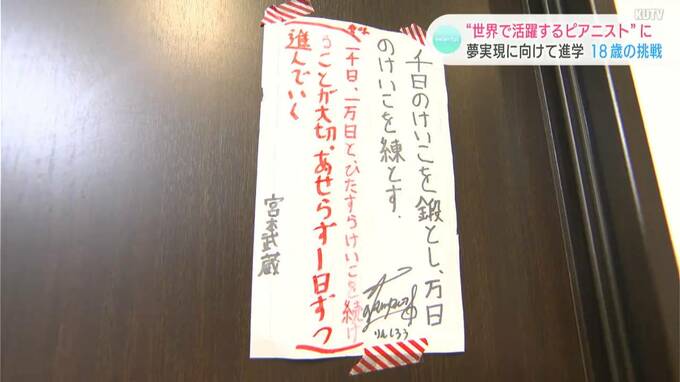 KUTV
“世界で活躍するピアニスト”に
夢実現に向けて進学 18歳の挑戦
千日のけいこを鍛とし、万日
のけいこを練とす.
りんしろう
千日、一万日と、ひたすらけいこを続け
ることが大切。あせらず一日ずつ
進んでいく
宮本武蔵